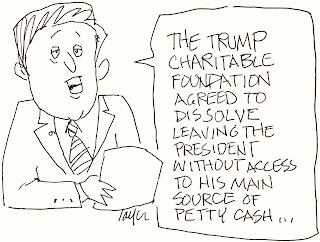 THE TRUMP
CHARITABLE
FOUNDATION
AGREED TO
DISSOLVE
LEAVING THE
PRESIDENT
WITHOUT ACCESS
TO HIS MAIN
SOURCE OF
PETTY CASH...
Tayler